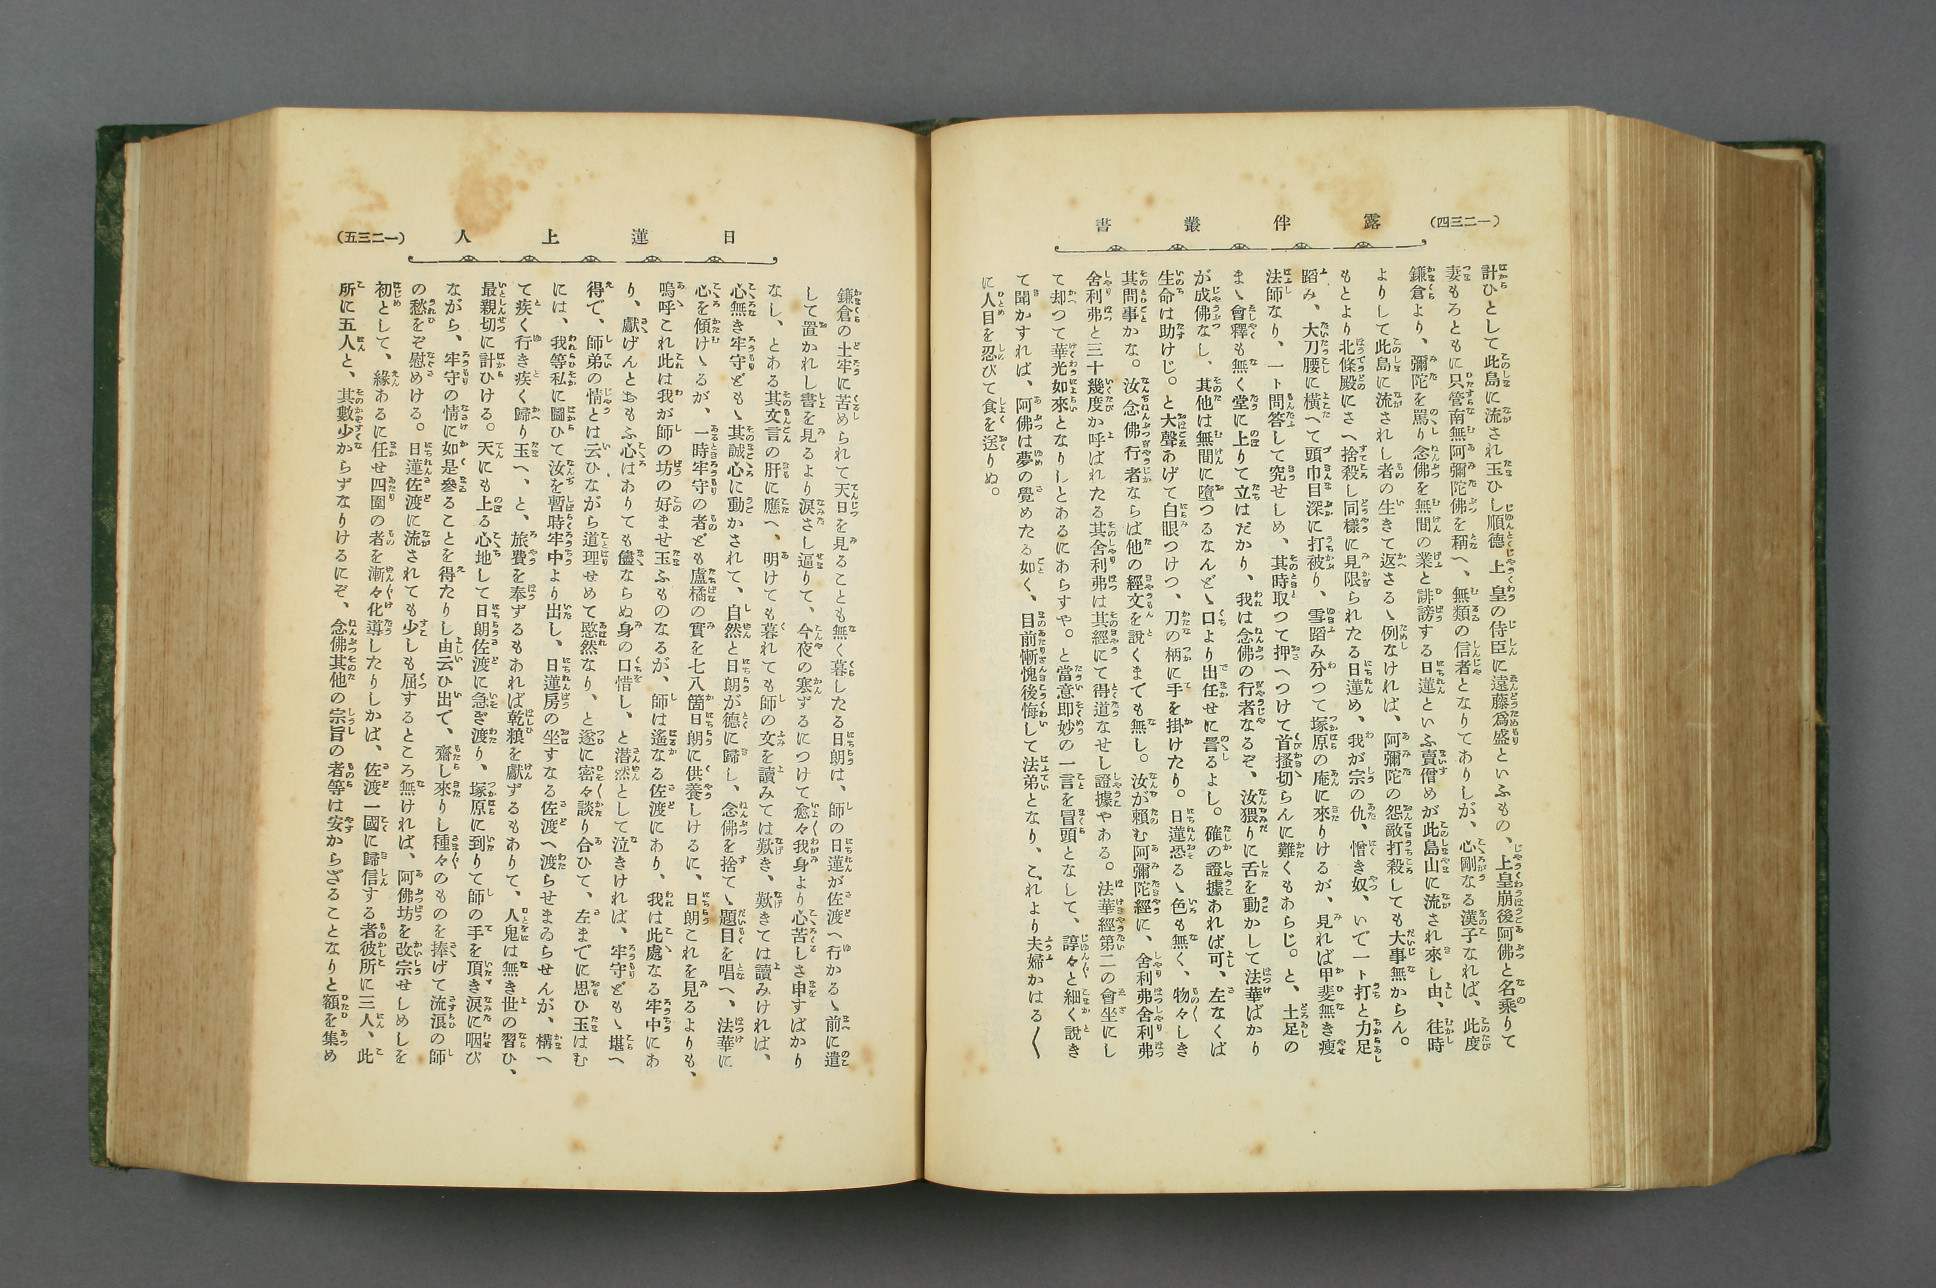 (一二三四)
露伴叢書
計ひとして此島に流され玉ひし順德上皇の侍臣に遠藤爲盛といふもの、上皇崩後阿佛と名乘りて
妻もろともに只管南無阿彌陀佛を稱へ、無類の信者となりてありしが、心剛なる漢子なれば、此度
鎌倉より、彌陀を罵り念佛を無間の業と誹謗する日蓮といふ賣僧めが此島山に流され來し由、往時
よりして此島に流されし者の生きて返さるゝ例なければ、阿彌陀の怨敵打殺しても大事無からん。
もとより北條殿にさへ捨殺し同樣に見限られたる日蓮め、我が宗の仇、憎き奴、いで一ト打と力足
蹈み、大刀腰に橫へて頭巾目深に打被り、雪蹈み分つて塚原の庵に來りけるが、見れば甲斐無き瘦
法師なり、一ト問答して究せしめ、其時取つて押へつけて首搔切らんに難くもあらじ。と、土足の
まゝ會釋も無く堂に上りて立はだかり、我は念佛の行者なるぞ、汝猥りに舌を動かして法華ばかり
が成佛なし、其他は無間に墮つるなんどゝ口より出任せに詈るよし。確の證據あれば可、左なくば
生命は助けじ。と大聲あげて白眼つけつ、刀の柄に手を掛けたり。日蓮恐るゝ色も無く、物々しき
其問事かな。汝念佛行者ならば他の經文を說くまでも無し。汝が賴む阿彌陀經に、舍利弗舍利弗
舍利弗と三十幾度か呼ばれたる其舍利弗は其經にて得道なせし證據やある。法華經第二の會坐にし
て却つて華光如來となりしとあるにあらすや。と當意卽妙の一言を冒頭となして、諄々と細く說き
て聞かすれば、阿佛は夢の覺めたる如く、目前慚愧後悔して法弟となり、これより夫婦かはる〱
に人目を忍びて食を送りぬ。
日蓮上人
(一二三五)
鎌倉の土牢に苦められて天日を見ることも無く暮したる日朗は、師の日蓮が佐渡へ行かるゝ前に遣
して置かれし書を見るより淚さし逼りて、今夜の寒ずるにつけて愈々我身より心苦しさ申すばかり
なし、とある其文言の肝に應へ、明けても暮れても師の文を讀みては歎き、歎きては讀みければ、
心無き牢守どもゝ其誠心に動かされて、自然と日朗が德に歸し、念佛を捨てゝ題目を唱へ、法華に
心を傾けゝるが、一時牢守の者ども盧橘の實を七八箇日朗に供養しけるに、日朗これを見るよりも、
嗚呼これ此は我が師の坊の好ませ玉ふものなるが、師は遙なる佐渡にあり、我は此處なる牢中にあ
り、獻げんとおもふ心はありても儘ならぬ身の口惜し、と潸然として泣きければ、牢守どもゝ堪へ
得で、師弟の情とは云ひながら道理せめて愍然なり、と遂に密々談り合ひて、左までに思ひ玉はむ
には、我等私に圖ひて汝を暫時牢中より出し、日蓮房の坐すなる佐渡へ渡らせまゐらせんが、構へ
て疾く行き疾く歸り玉へ、と、旅費を奉ずるもあれば乾糧を獻ずるもありて、人鬼は無き世の習ひ、
最親切に計ひける。天にも上る心地して日朗佐渡に急ぎ渡り、塚原に到りて師の手を頂き淚に咽び
ながら、牢守の情に如是參ることを得たりし由云ひ出て、齎し來りし種々のものを捧げて流浪の師
の愁をぞ慰めける。日蓮佐渡に流されても少しも屈するところ無ければ、阿佛坊を改宗せしめしを
初として、緣あるに任せ四圍の者を漸々化導したりしかば、佐渡一國に歸信する者彼所に三人、此
所に五人と、其數少からずなりけるにぞ、念佛其他の宗旨の者等は安からざることなりと額を集め